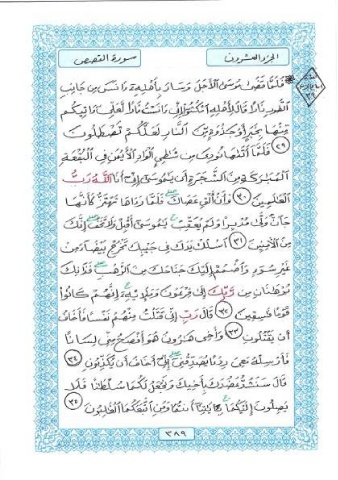 الجزء العشرون
سورة القصص
فَلَمَّا قَضَىٰ مُوسَى الْأَجَلَ وَسَارَ بِأَهْلِهِ ءَانَسَ مِن جَانِبِ
الطُّورِ نَارًا قَالَ لِأَهْلِهِ امْكُثُوا إِنِّي ءَانَسْتُ نَارًا لَّعَلِّي ءَاتِيكُم
مِّنْهَا بِخَبَرٍ أَوْ جَذْوَةٍ مِّنَ النَّارِ لَعَلَّكُمْ تَصْطَلُونَ
٢٩ فَلَمَّا أَتَىٰهَا نُودِيَ مِن شَاطِئِ الْوَادِ الْأَيْمَنِ فِي الْبُقْعَةِ
الْمُبَارَكَةِ مِنَ الشَّجَرَةِ أَن يَٰمُوسَىٰ إِنِّي أَنَا اللَّهُ رَبُّ
الْعَٰلَمِينَ ٣٠ وَأَنْ أَلْقِ عَصَاكَ فَلَمَّا رَءَاهَا تَهْتَزُّ كَأَنَّهَا
جَانٌّ وَلَّىٰ مُدْبِرًا وَلَمْ يُعَقِّبْ يَٰمُوسَىٰ أَقْبِلْ وَلَا تَخَفْ إِنَّكَ
مِنَ الْءَامِنِينَ ٣١ اسْلُكْ يَدَكَ فِي جَيْبِكَ تَخْرُجْ بَيْضَاءَ مِنْ
غَيْرِ سُوءٍ وَاضْمُمْ إِلَيْكَ جَنَاحَكَ مِنَ الرَّهْبِ فَذَٰنِكَ
بُرْهَٰنَانِ مِن رَّبِّكَ إِلَىٰ فِرْعَوْنَ وَمَلَإِيْهِ إِنَّهُمْ كَانُوا
قَوْمًا فَٰسِقِينَ ٣٢ قَالَ رَبِّ إِنِّي قَتَلْتُ مِنْهُمْ نَفْسًا فَأَخَافُ
أَن يَقْتُلُونِ ٣٣ وَأَخِي هَٰرُونُ هُوَ أَفْصَحُ مِنِّي لِسَانًا
فَأَرْسِلْهُ مَعِيَ رِدْءًا يُصَدِّقُنِي إِنِّي أَخَافُ أَن يُكَذِّبُونِ ٣٤
قَالَ سَنَشُدُّ عَضُدَكَ بِأَخِيكَ وَنَجْعَلُ لَكُمَا سُلْطَٰنًا فَلَا
يَصِلُونَ إِلَيْكُمَا بِـَٔايَٰتِنَا أَنتُمَا وَمَنِ اتَّبَعَكُمَا الْغَٰلِبُونَ ٣٥
٣٨٩